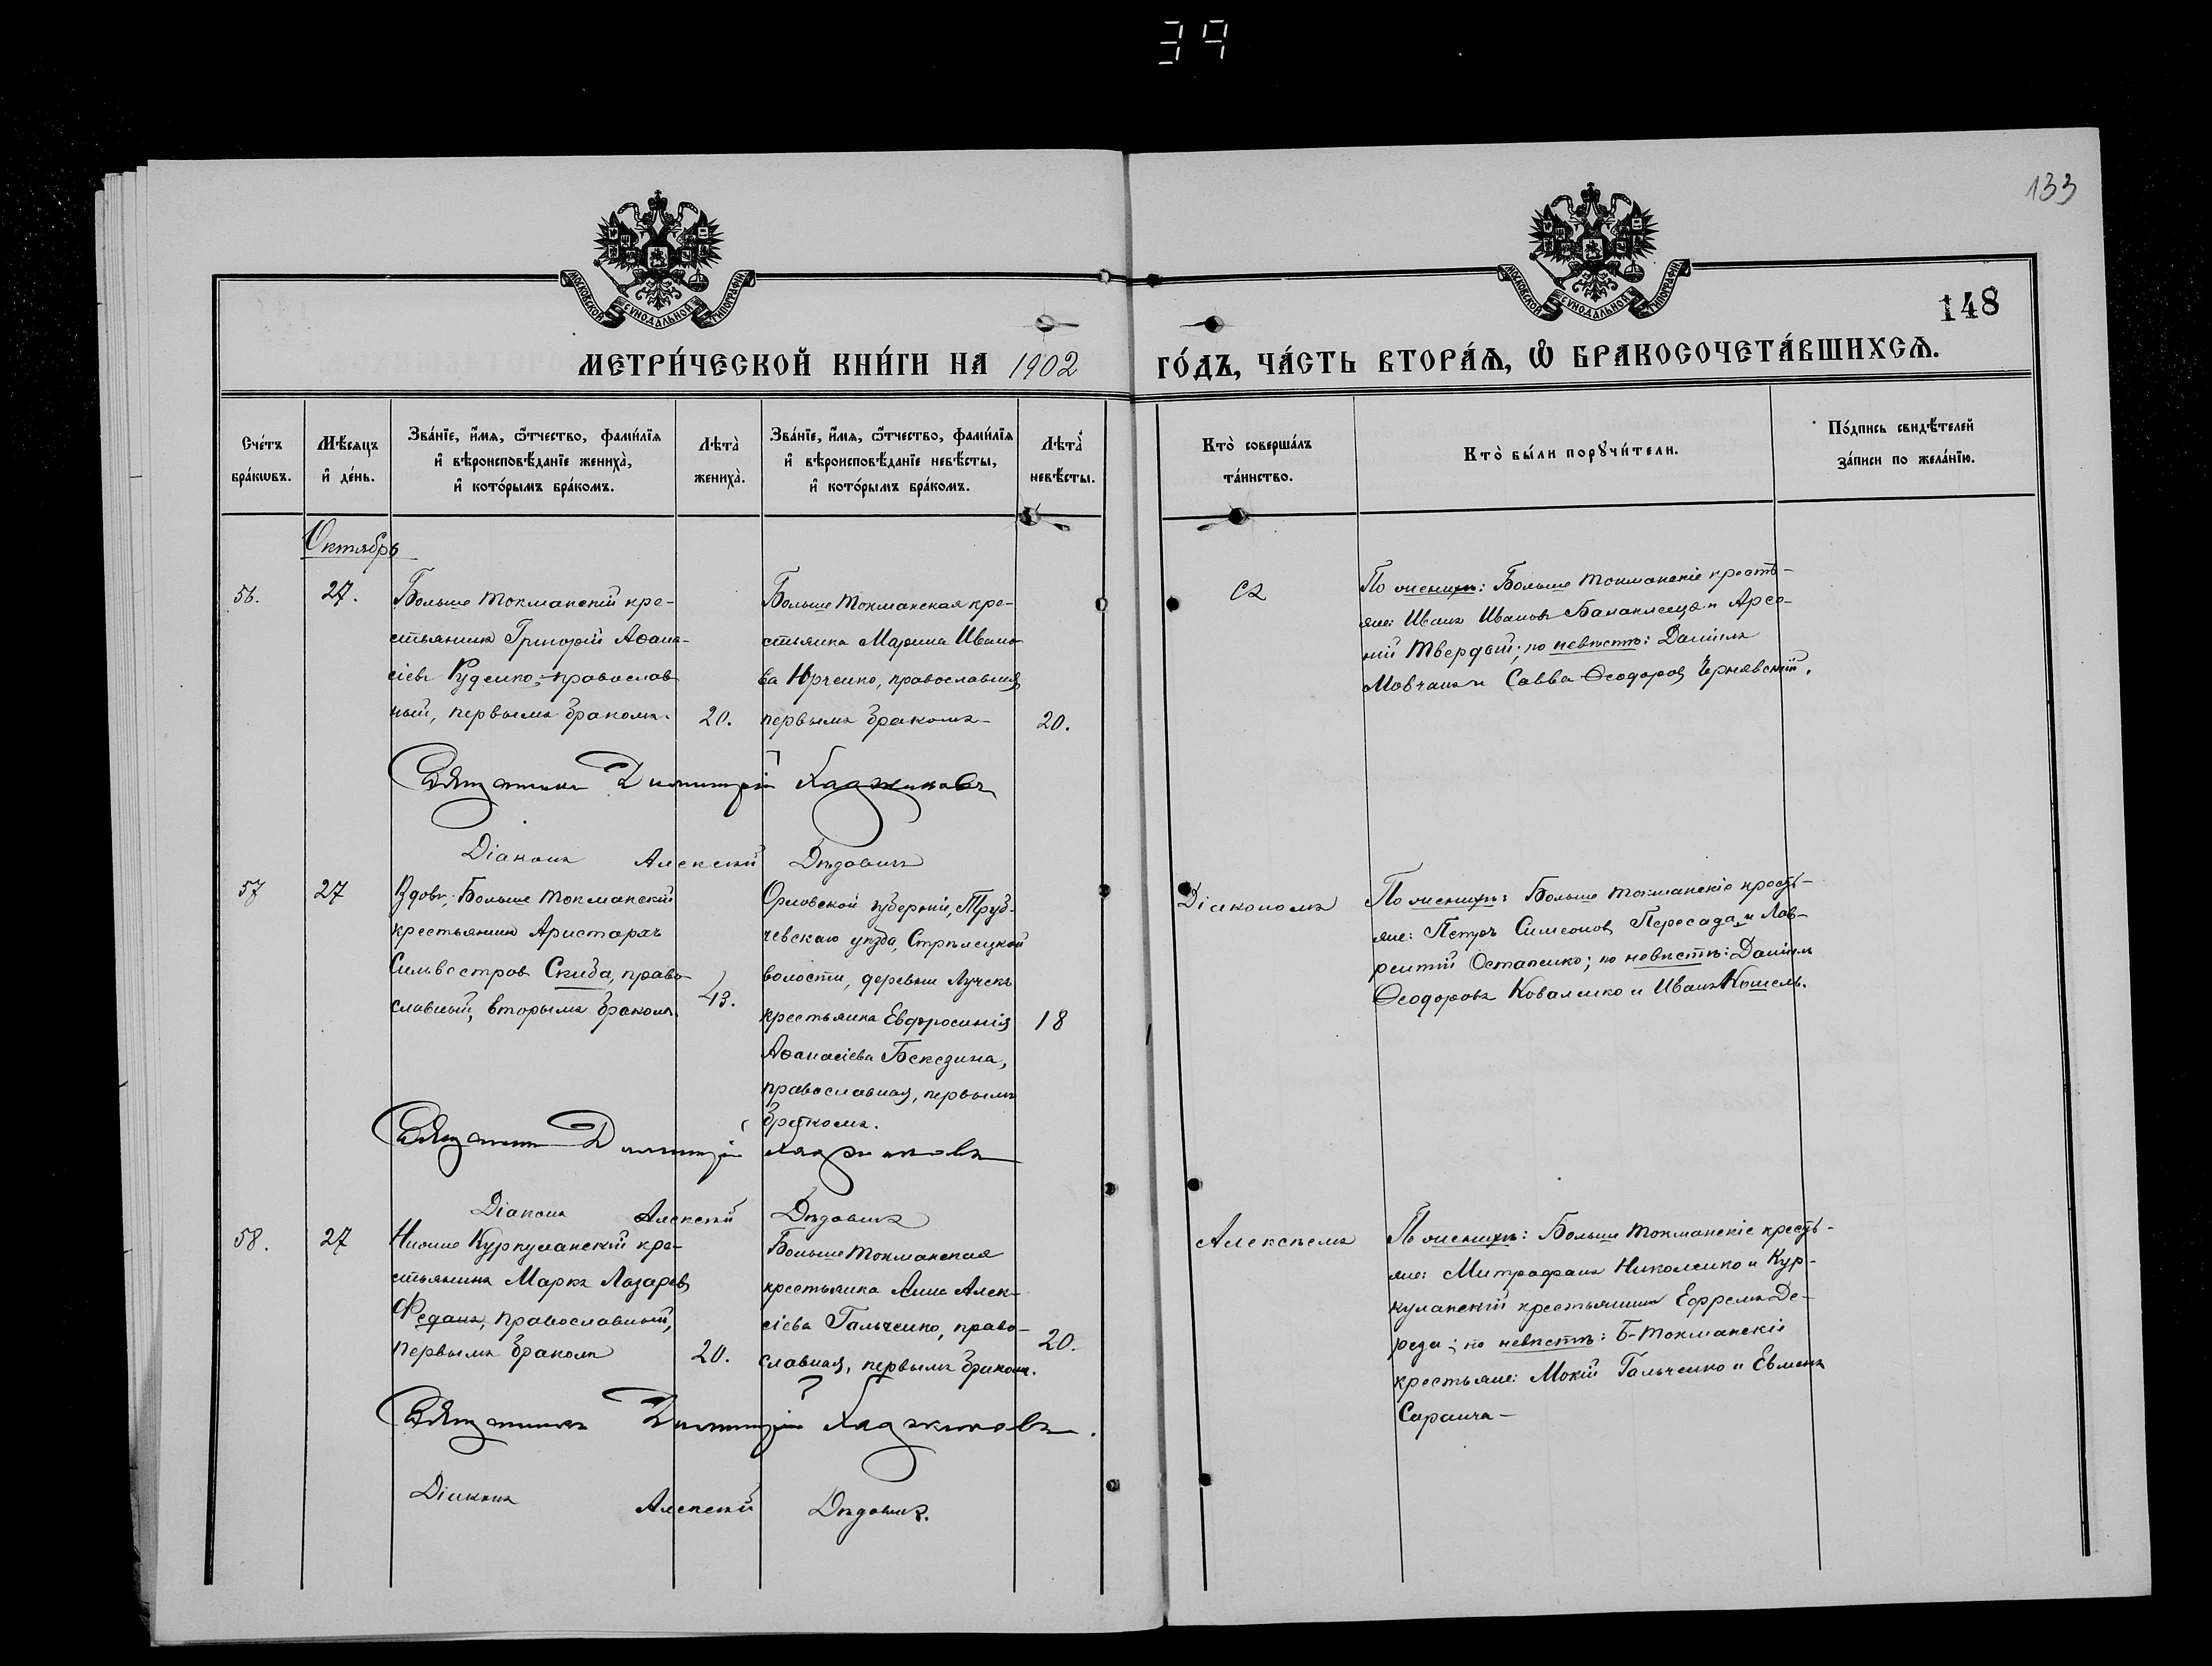 39
133
148
МОСКОВСКОЙ СѴНОДАЛЬНОЙ ТИПОГРАФІИ
МОСКОВСКОЙ СѴНОДАЛЬНОЙ ТИПОГРАФІИ
МЕТРИ́ЧЕСКОЙ КНИ́ГИ НА 1902 ГО́ДЪ, ЧА́СТЬ ВТОРА́Ѧ, Ѽ БРАКОСОЧЕТА́ВШИХСѦ.
Сче́тъ бра́кѡвъ.
Мѣ́сяцъ и҆ де́нь.
Зва́нїе, и҆́мя, ѻ҆́тчество, фами́лїя и҆ вѣроисповѣ́данїе жениха̀, и҆ кото́рымъ бра́комъ.
Лѣта̀ жениха̀.
Зва́нїе, и҆́мя, ѻ҆́тчество, фами́лїя и҆ вѣроисповѣ́данїе невѣ́сты, и҆ кото́рымъ бра́комъ.
Лѣта̀ невѣ́сты.
Кто̀ соверша́лъ та́инство.
Кто̀ бы́ли порꙋчи́тели.
По́дпись свидѣ́телей за́писи по жела́нїю.
Октябрь
56.
27.
Больше Токмакскій кре-
стьянинъ Григорій Аѳана-
сіевъ Руденко, православ
ный, первымъ бракомъ.
20.
Больше Токмакская кре-
стьянка Марина Ивано
ва Юрченко, православная
первымъ бракомъ
20.
Съ
По женихѣ: Больше Токмакскіе кресть-
яне: Иванъ Ивановъ Балаклеецъ и Арсе-
ній Твердый; по невѣстѣ: Даніилъ
Мовчанъ и Савва Ѳеодоровъ Чернявскій.
Священникъ Димитрій Хаджиновъ
Діаконъ Алексій Дѣдовичъ
57
27
Вдовъ, Больше Токмакскій
крестьянинъ Аристархъ
Сильвестровъ Скиба, право
славный, вторымъ бракомъ.
43.
Орловской губерніи, Труб-
чевскаго уѣзда, Стрѣлецкой
волости, деревни Лучекъ
крестьянка Евфросинія
Аѳанасіева Бекезина,
православная, первымъ
бракомъ.
18
Діакономъ
По женихѣ: Больше Токмакскіе кресть-
яне: Петръ Симеоновъ Пересада и Лав-
рентій Остапенко; по невѣстѣ: Даніилъ
Ѳеодоровъ Коваленко и Иванъ Кошель.
Священникъ Димитрій Хаджиновъ
Діаконъ Алексій Дѣдовичъ
58.
27
Нижне Куркулакскій кре-
стьянинъ Маркъ Лазаревъ
Феданъ, православный,
первымъ бракомъ
20.
Больше Токмакская
крестьянка Анна Алек-
сіева Гальченко, право-
славная, первымъ бракомъ.
20.
Алексѣемъ
По женихѣ: Больше Токмакскіе кресть-
яне: Митрофанъ Николенко и Кур-
кулакскій крестьянинъ Ефремъ Де-
реда; по невѣстѣ: Б-Токмакскіе
крестьяне: Мокій Гальченко и Евменъ
Саранча
Священникъ Димитрій Хаджиновъ.
Діаконъ Алексій Дѣдовичъ.